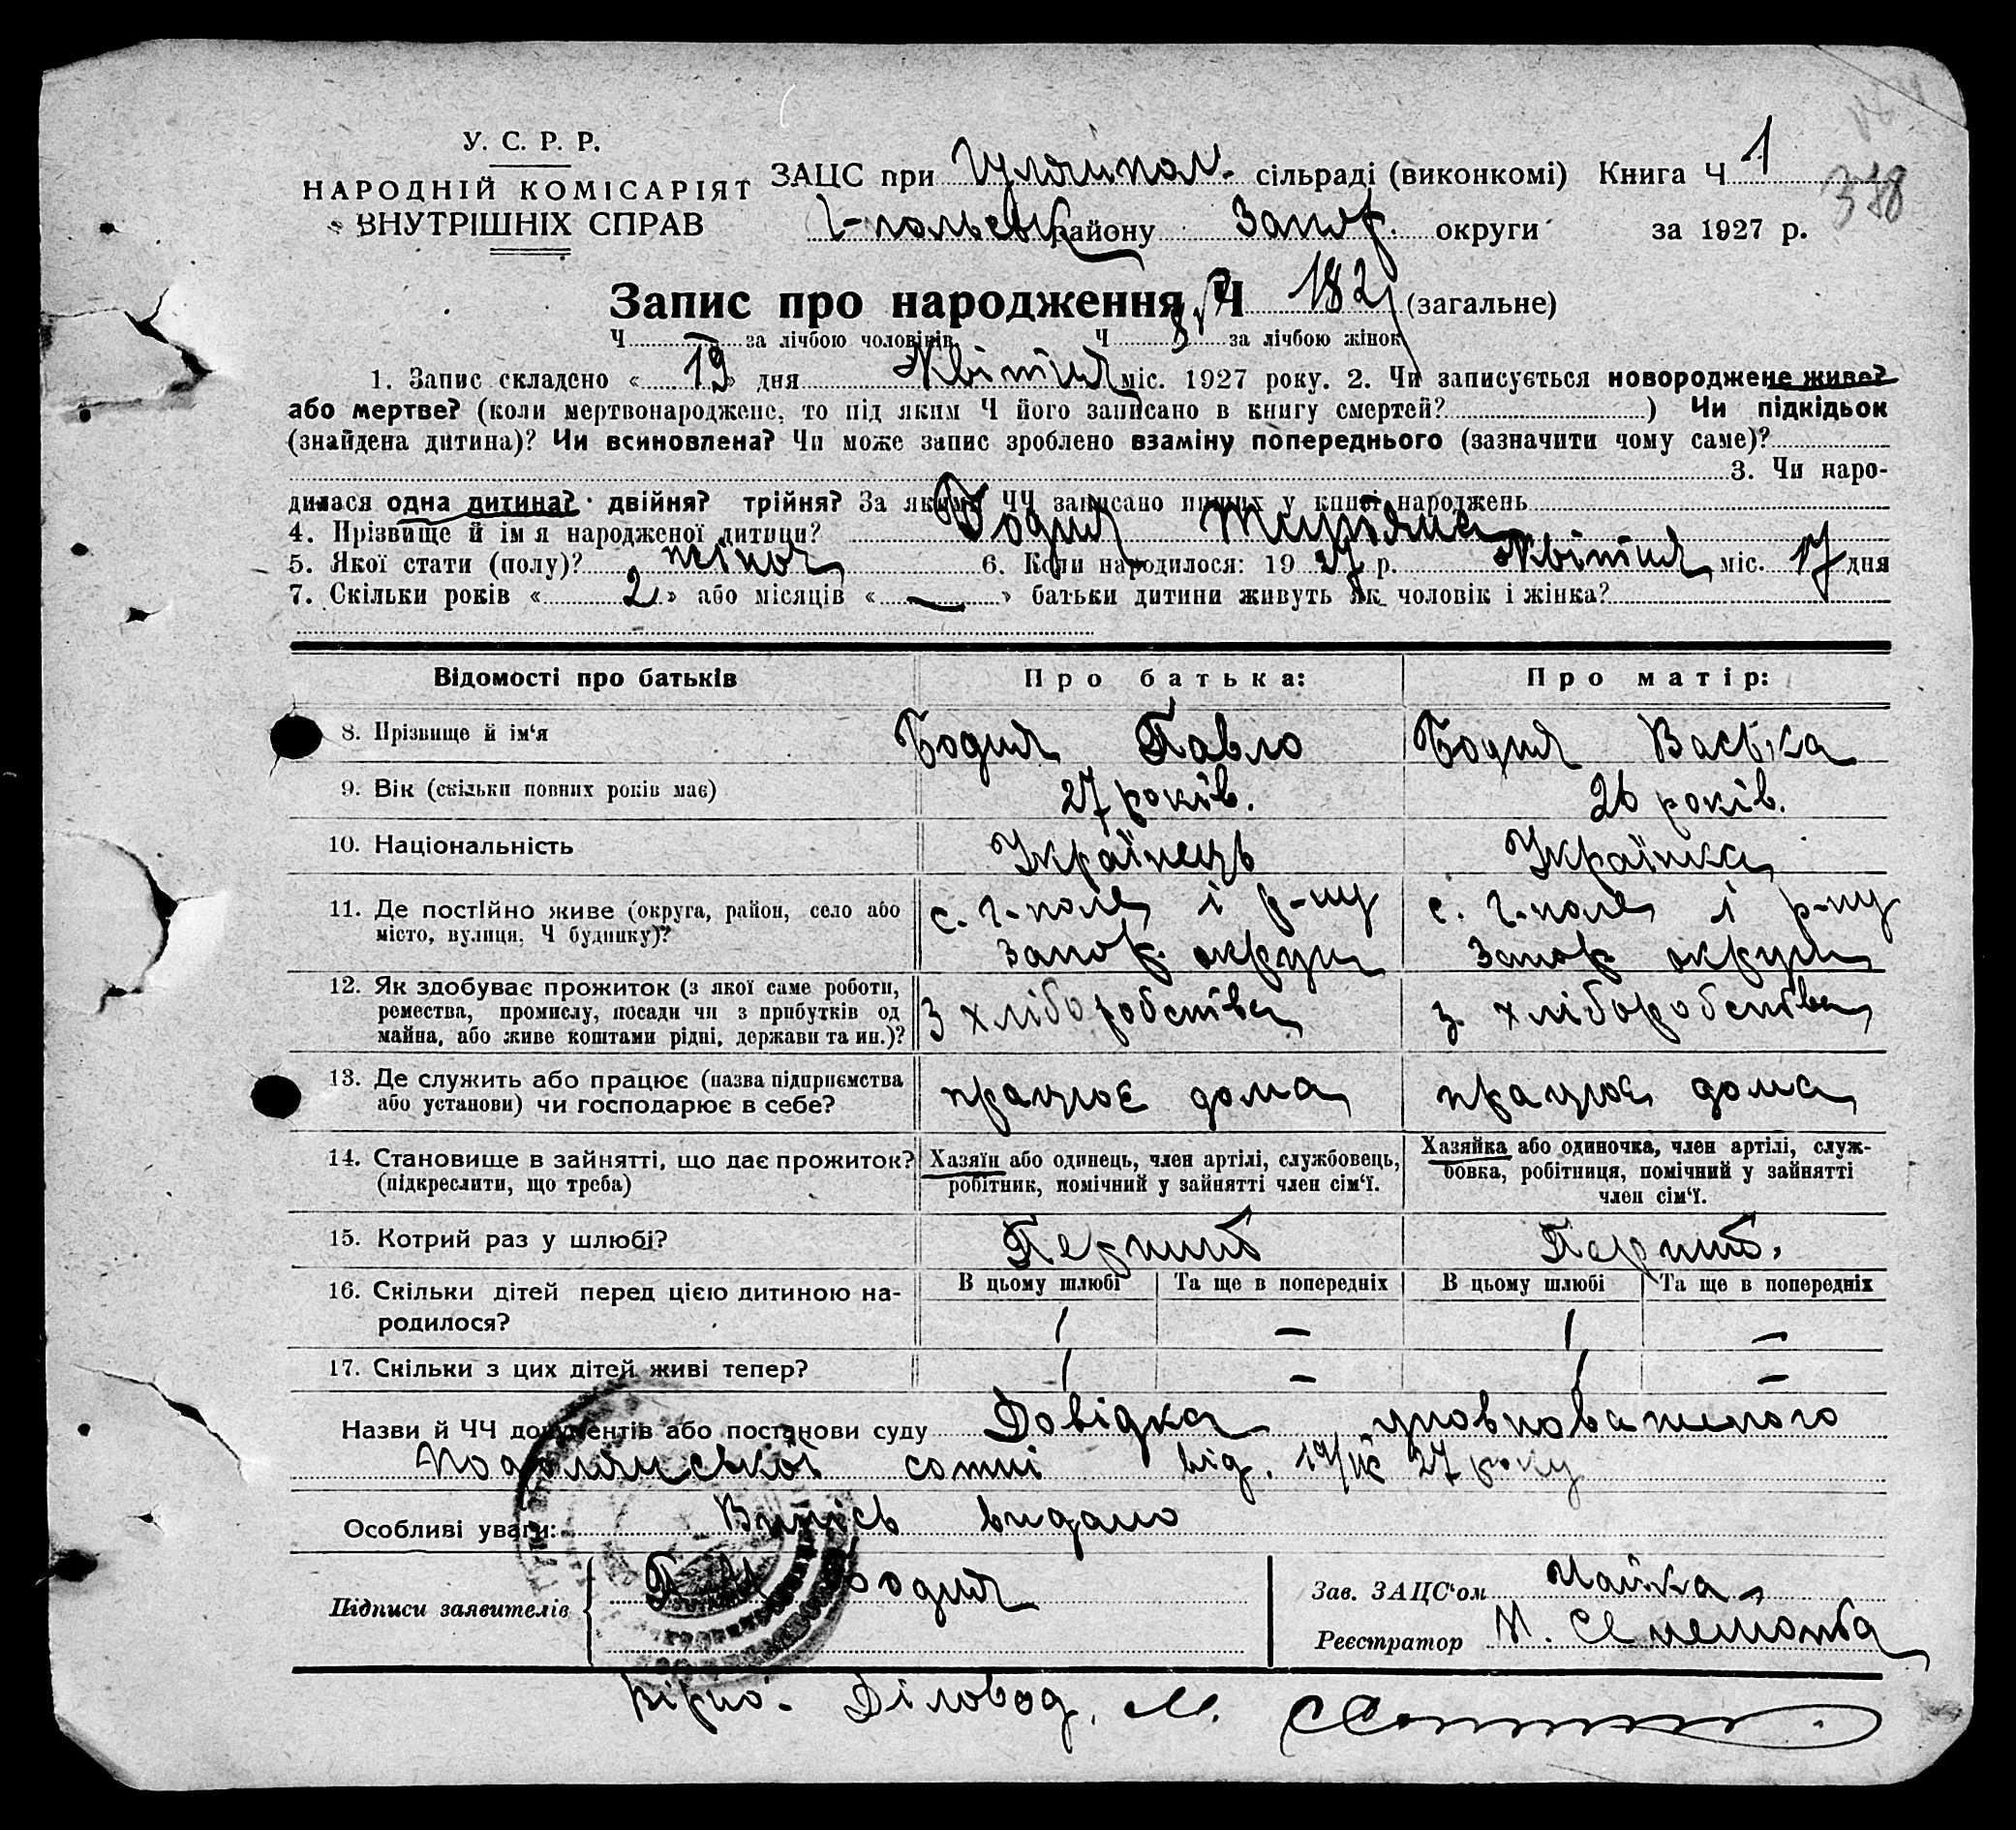 У. С. Р. Р.
НАРОДНІЙ КОМІСАРІЯТ
ВНУТРІШНІХ СПРАВ
ЗАЦС при Гуляйпол. сільраді (виконкомі) Книга Ч 1
378
Г-польськ району Запор. округи за 1927 р.
Запис про народження Ч 182 (загальне)
Ч за лічбою чоловіків. Ч за лічбою жінок
1. Запис складено « 19 » дня Квітня міс. 1927 року. 2. Чи записується новороджене живе?
або мертве? (коли мертвонароджене, то під яким Ч його записано в книгу смертей? ) Чи підкідьок
(знайдена дитина)? Чи всиновлена? Чи може запис зроблено взаміну попереднього (зазначити чому саме)?
3. Чи наро-
дилася одна дитина? двійня? трійня? За якими ЧЧ записано инших у книзі народжень
4. Прізвище й ім'я народженої дитини? Бодня
5. Якої стати (полу)? жіноч 6. Коли народилося: 19 27 р. Квітня міс. 17 дня
7. Скільки років « 2 » або місяців « — » батьки дитини живуть як чоловік і жінка?
Відомості про батьків Про батька: Про матір:
8. Прізвище й ім'я Бодня Павло Бодня Васька
9. Вік (скільки повних років має) 27 років. 26 років.
10. Національність Українець Українка
11. Де постійно живе (округа, район, село або с. Г-поле і р-ну с. Г-поле і р-ну
місто, вулиця, Ч будинку)? Запор. округи Запор округи
12. Як здобуває прожиток (з якої саме роботи,
ремества, промислу, посади чи з прибутків од З хліборобства з хліборобства
майна, або живе коштами рідні, держави та ин.)?
13. Де служить або працює (назва підприємства працює дома працює дома
або установи) чи господарює в себе?
14. Становище в зайнятті, що дає прожиток? Хазяїн або одинець, член артілі, службовець, Хазяйка або одиночка, член артілі, служ-
(підкреслити, що треба) робітник, помічний у зайнятті член сім'ї. бовка, робітниця, помічний у зайнятті
член сім'ї.
15. Котрий раз у шлюбі? Перший Перший.
16. Скільки дітей перед цією дитиною на- В цьому шлюбі Та ще в попередніх В цьому шлюбі Та ще в попередніх
родилося? 1 — 1 —
17. Скільки з цих дітей живі тепер? 1 — 1 —
Назви й ЧЧ документів або постанови суду Довідка уповноваженого
Подолянської сотні від. 19/IV 27 року
Особливі уваги: Випісь видано
Підписи заявителів Бодня
Зав. ЗАЦС'ом Чайка
Реєстратор
Вірно: Діловод. М.